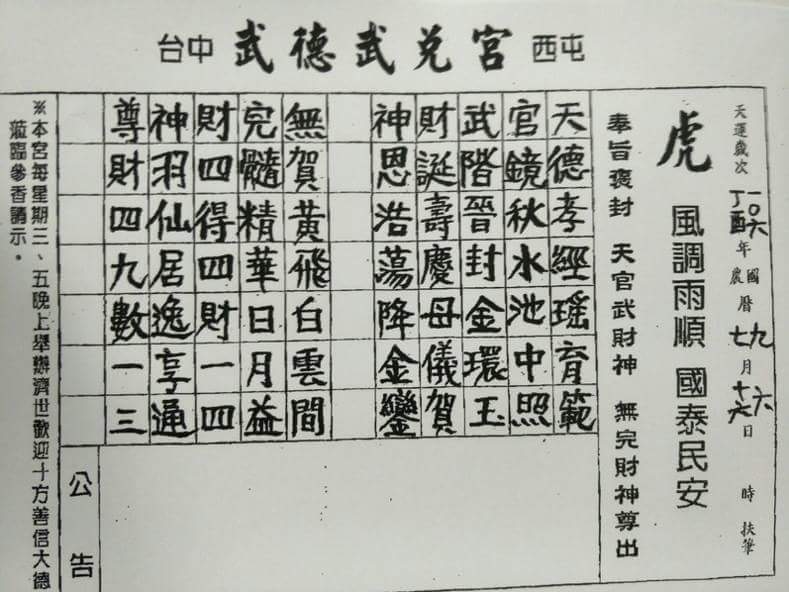 台中 武德武兌宮 西屯
天運歲次 一〇六丁酉 年 國農 曆 九七 月 六十六 日 時 扶筆
虎 風調雨順 國泰民安
奉旨褒封 天官武財神 無完財神尊出
天德孝經瑤育範
官鏡秋水池中照
武階晉封金環玉
財誕壽慶母儀賀
神恩浩蕩降金鑾
無賀黃飛白雲間
完髓精華日月益
財四得四財一四
神羽仙居逸享通
尊財四九數一三
公告
※本宮每星期三、五晚上舉辦濟世歡迎十方善信大德
蒞臨參香請示。